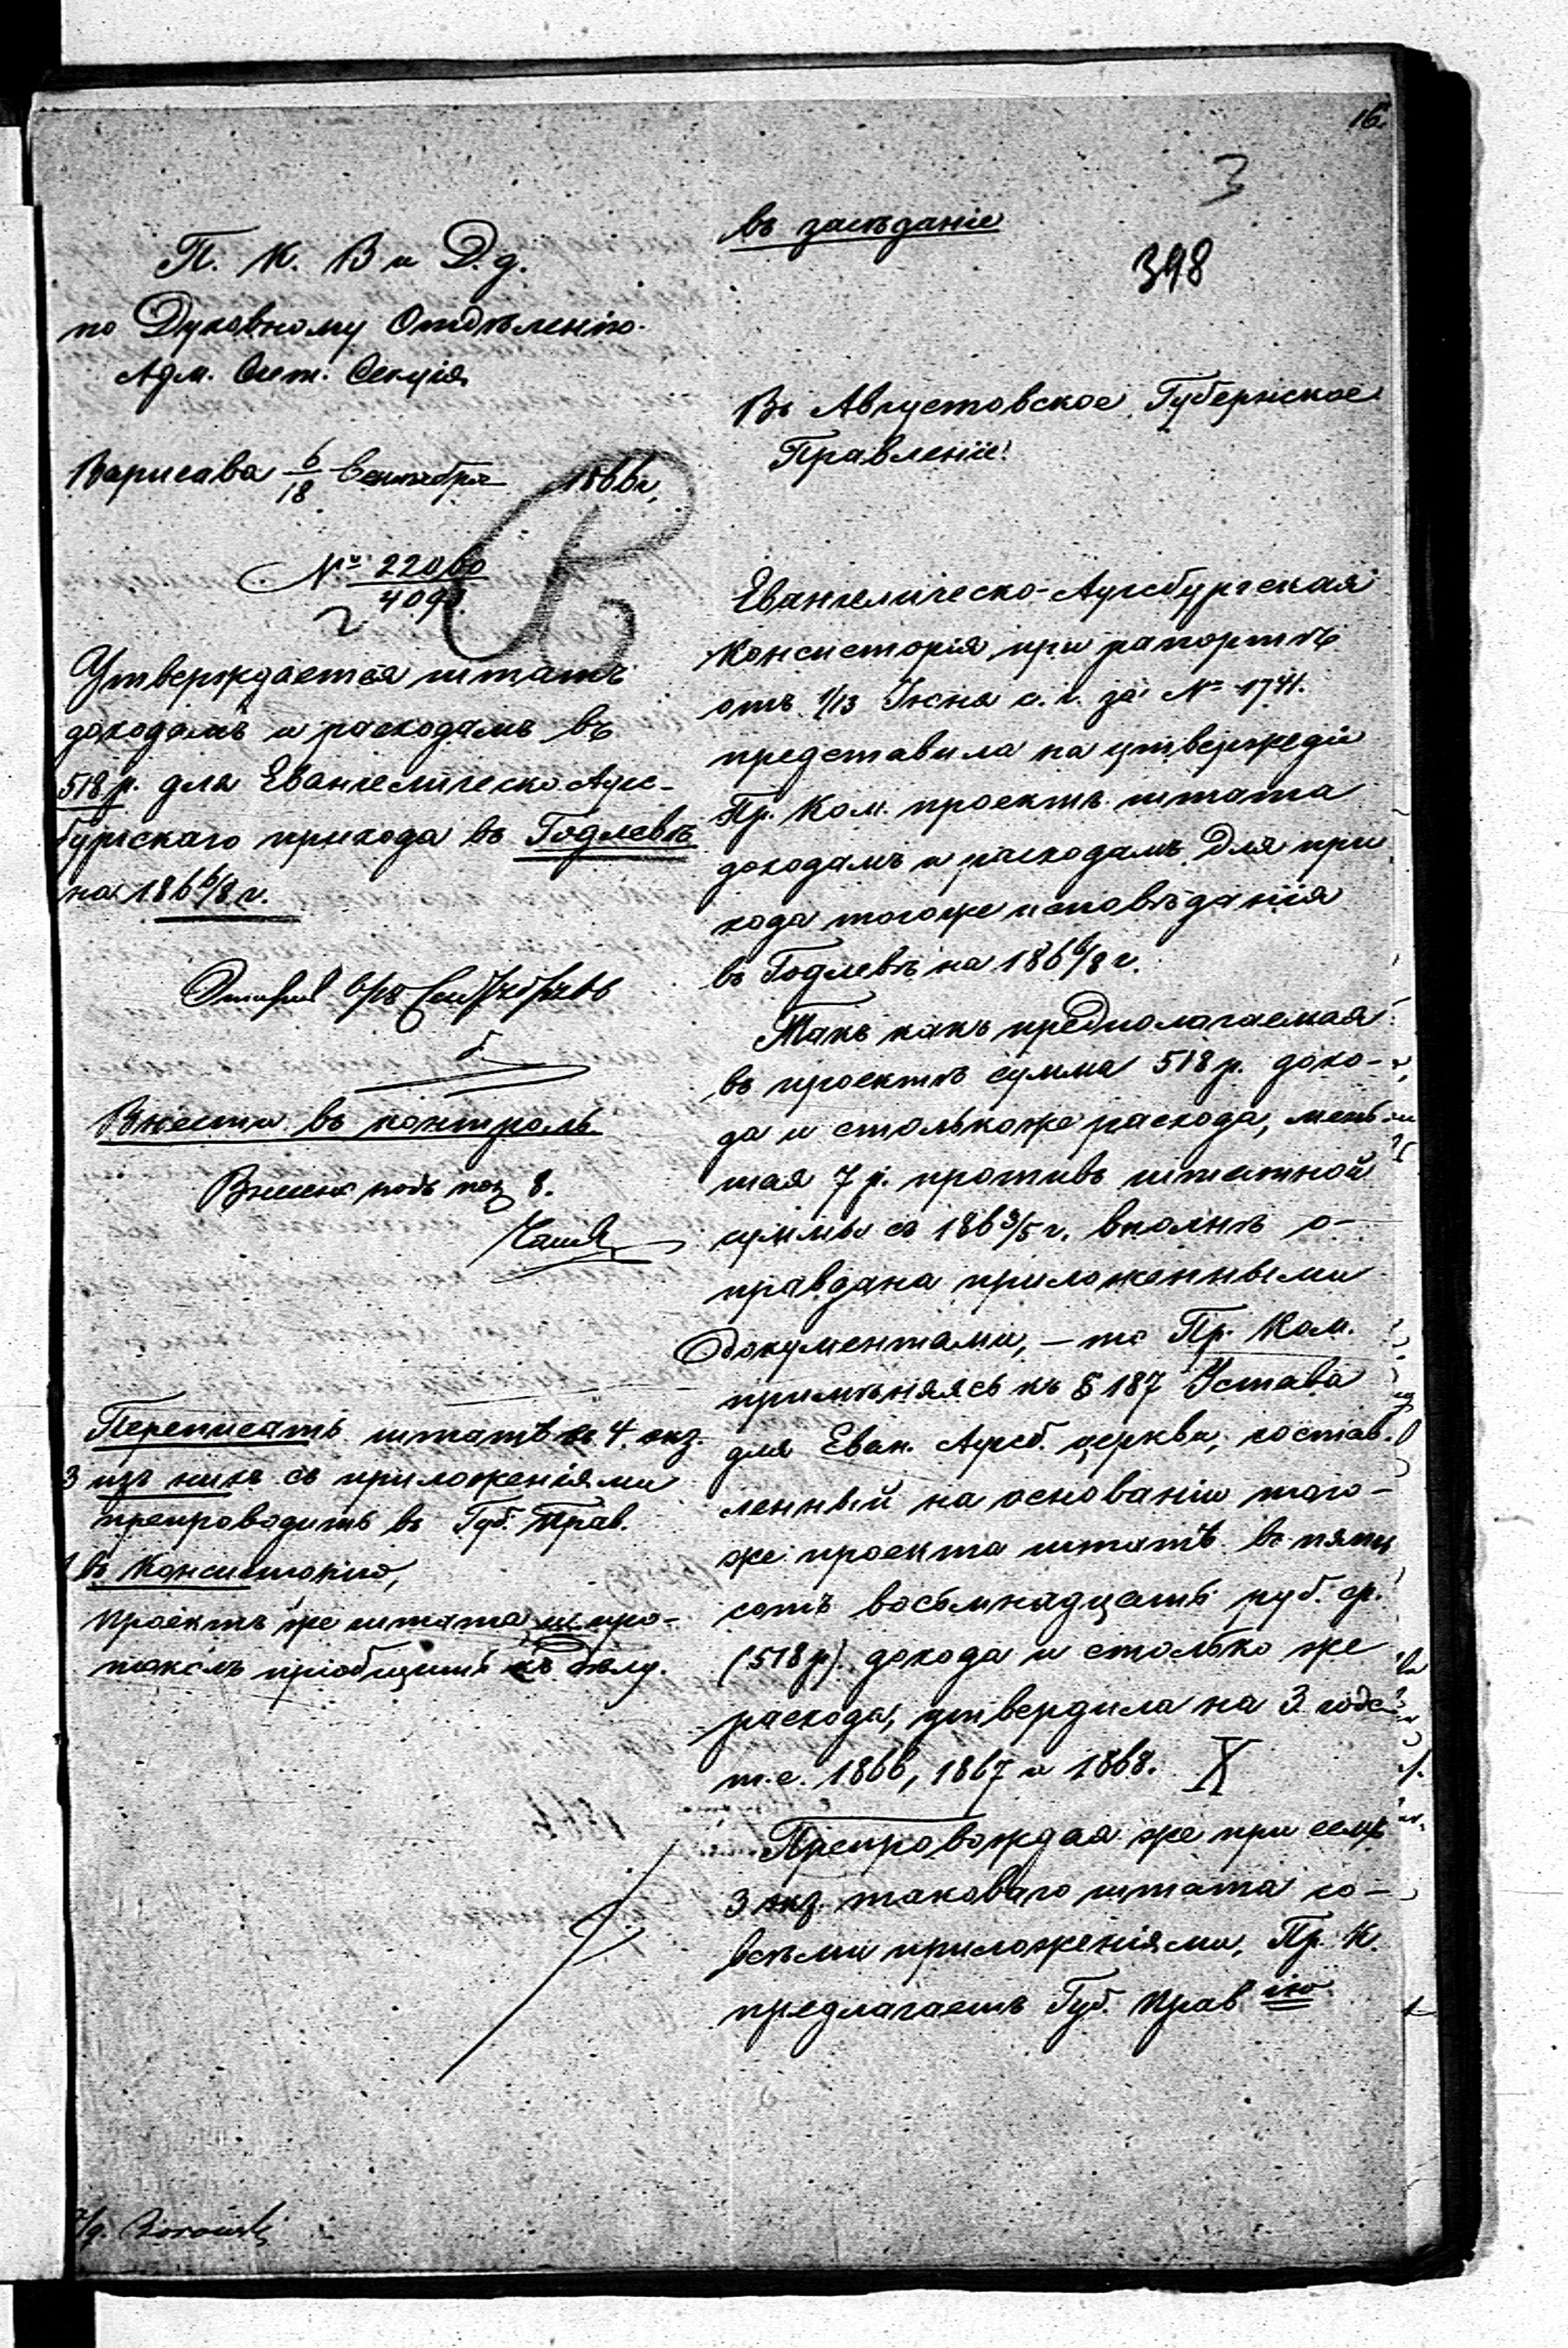 16.
3
въ засѣданіе
398
П. К. В и Д. д.
по Духовному Отдѣленію.
Адм. Счет. Секція
Варшава 6/18 Сентября 1866 г.
№ 22060/409
Утверждается штатъ
доходамъ и расходамъ въ
518 р. для Евангелическо Аугс-
бургскаго прихода въ Годлевѣ
на 186 6/8 г.
Внести въ контроль
Внесено подъ поз 8.
Переписать штатъ въ 4. экз.
3 изъ нихъ съ приложеніями
препроводить въ Губ. Прав.
1 въ Консисторію,
Проектъ же штата и про-
токолъ пріобщить къ дѣлу.
Въ Августовское Губернское
Правленіе
Евангелическо-Аугсбургская
Консисторія при рапортѣ
отъ 1/13 Іюня с. г. за № 1741.
представила на утвержденіе
Пр. Ком. проектъ штата
доходамъ и расходамъ для при
хода тогоже исповѣданія
въ Годлевѣ на 186 6/8 г.
Такъ какъ предполагаемая
въ проектѣ сумма 518 р. дохо-
да и столькоже расхода, мень
шая 7 р. противъ штатной
суммы съ 186 3/5 г. вполнѣ о-
правдана приложенными
документами, — то Пр. Ком.
примѣняясь къ § 187 Устава
для Еван. Аугсб. церкви, состав.
ленный на основаніи того-
же проекта штатъ въ пять
сотъ восьмнадцать руб. ср.
(518 р) дохода и столько же
расхода, утвердила на 3 года
т. е. 1866, 1867 и 1868. X
Препровождая же при семъ
3 экз. таковаго штата со-
всѣми приложеніями, Пр. К.
предлагаетъ Губ. Прав ію